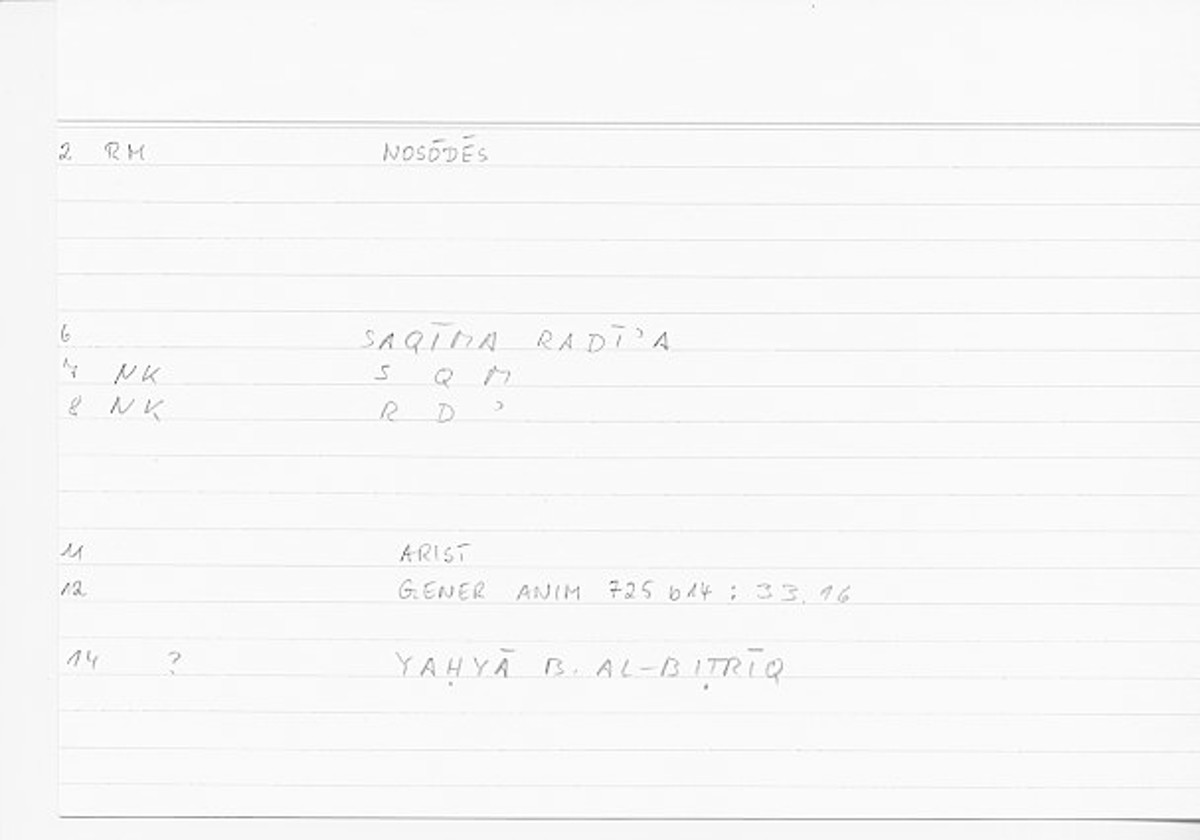 2 RM NOSŌDĒS
6 SAQĪMA RADĪʾA
7 NK S Q M
8 NK R D ʾ
11 ARIST
12 GENER ANIM 725 b14 : 33.16
14 ? YAḤYĀ B. AL-BIṬRĪQ